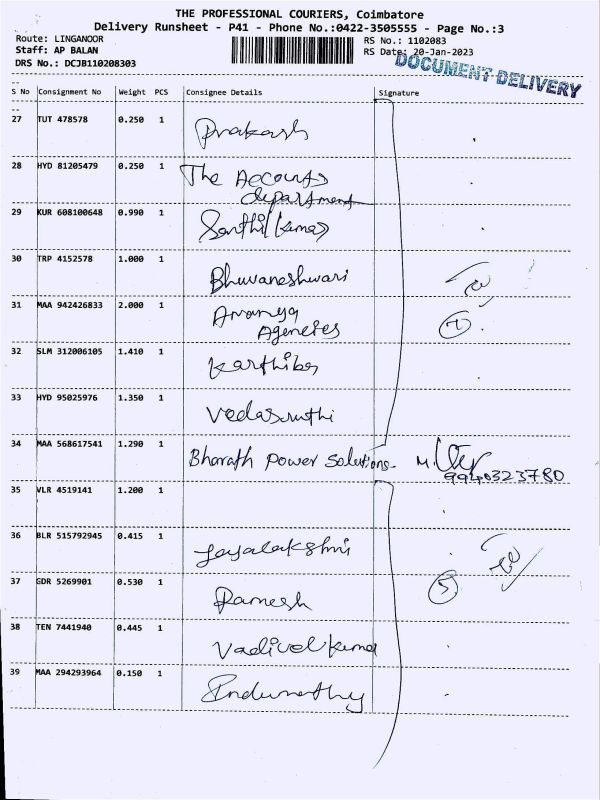 THE PROFESSIONAL COURIERS, Coimbatore
Delivery Runsheet - P41 - Phone No.:0422-3505555 - Page No.:3
Route: LINGANOOR
RS No.: 1102083
Staff: AP BALAN
RS Date: 20-Jan-2023
DRS No.: DCJB110208303
DOCUMENT DELIVERY
S No Consignment No Weight PCS Consignee Details Signature
27 TUT 478578 0.250 1 Prakash
28 HYD 81205479 0.250 1 The Accounts
department
29 KUR 608100648 0.990 1 Senthil Kumar
30 TRP 4152578 1.000 1 Bhuvaneshwari
31 MAA 942426833 2.000 1 Ananya
Agencies
7
32 SLM 312006105 1.410 1
33 HYD 95025976 1.350 1
34 MAA 568617541 1.290 1 Bharath Power Solutions M.
9940323780
35 VLR 4519141 1.200 1
36 BLR 515792945 0.415 1 Jayalakshmi
37 GDR 5269901 0.530 1 Ramesh 5
38 TEN 7441940 0.445 1 Vadivelkumar
39 MAA 294293964 0.150 1 Indumathy